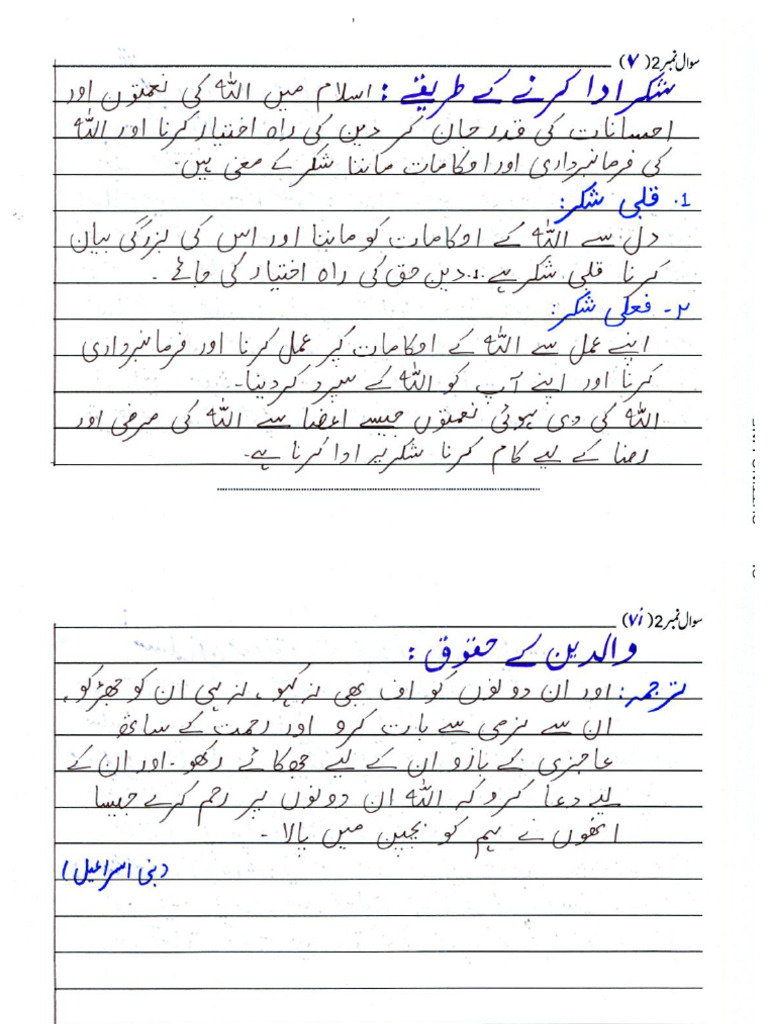 سوال نمبر 2 (v)
شکر ادا کرنے کے طریقے: اسلام میں اللہ کی نعمتوں اور
احسانات کی قدر جان کر دین کی راہ اختیار کرنا اور اللہ
کی فرمانبرداری اور اوکامات ماننا شکر کے معنی ہیں۔
1. قلبی شکر:
دل سے اللہ کے اوکامات کو ماننا اور اس کی بزرگی بیان
کرنا قلبی شکر ہے۔ دین حق کی راہ اختیار کی جائے۔
۲- فعلی شکر:
اپنے عمل سے اللہ کے اوکامات پر عمل کرنا اور فرمانبرداری
کرنا اور اپنے آپ کو اللہ کے سپرد کر دینا۔
اللہ کی دی ہوئی نعمتوں جیسے اعضا سے اللہ کی مرضی اور
رضا کے لیے کام کرنا شکریہ ادا کرنا ہے۔
سوال نمبر 2 (vi)
والدین کے حقوق:
ترجمہ: اور ان دونوں کو اف بھی نہ کہو، نہ ہی ان کو جھڑکو،
ان سے نرمی سے بات کرو اور رحمت کے ساتھ
عاجزی کے بازو ان کے لیے جھکائے رکھو۔ اور ان کے
لیے دعا کرو کہ اللہ ان دونوں پر رحم کرے جیسا
انھوں نے ہم کو بچپن میں پالا۔
(بنی اسراعیل)
CUTTING LINE